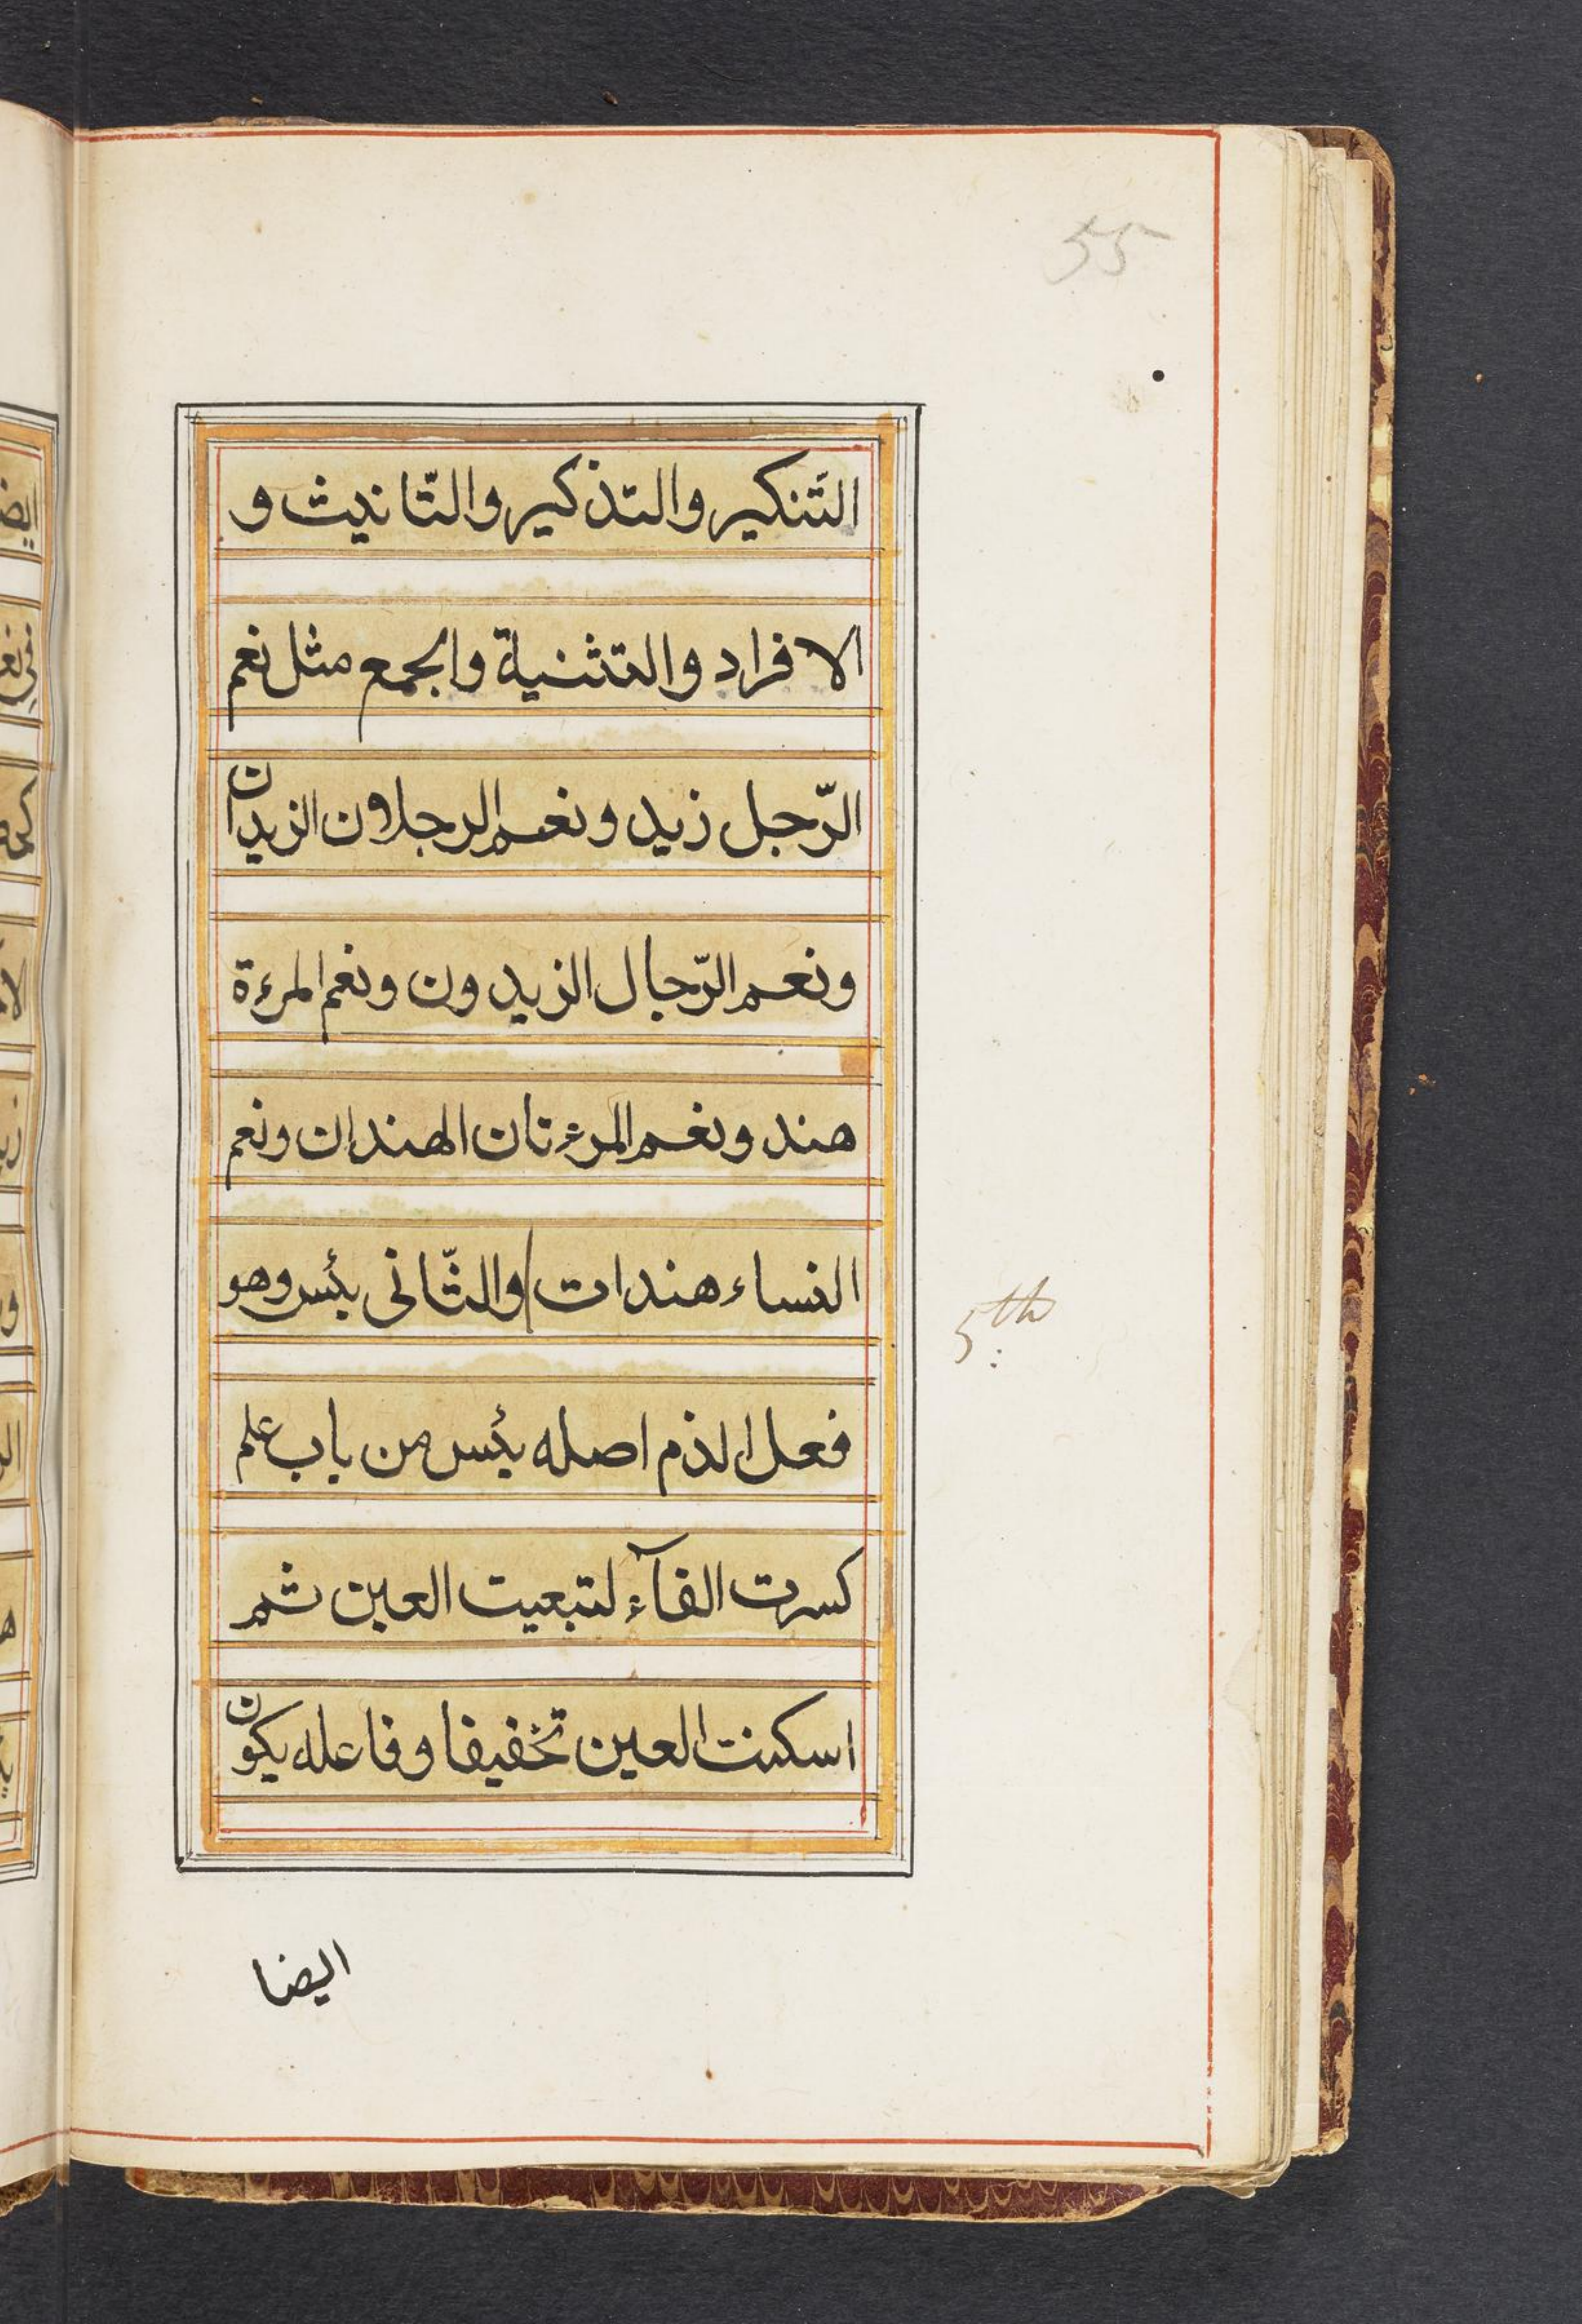 55
التَنكير والتذكير والتّانيث و
الافراد والتثنية والجمع مثل نعم
الرّجل زيد ونعم الرجلان الزيدان
ونعم الرّجال الزيدون ونعم المرءة
هند ونعم المرءتان الهندان ونعم
النساء هندات والثّانى بئس وهو
5th
فعل الذم اصله بئس من باب علم
كسرت الفآء لتبعيت العين ثم
اسكنت العين تخفيفا وفاعله يكون
ايضا